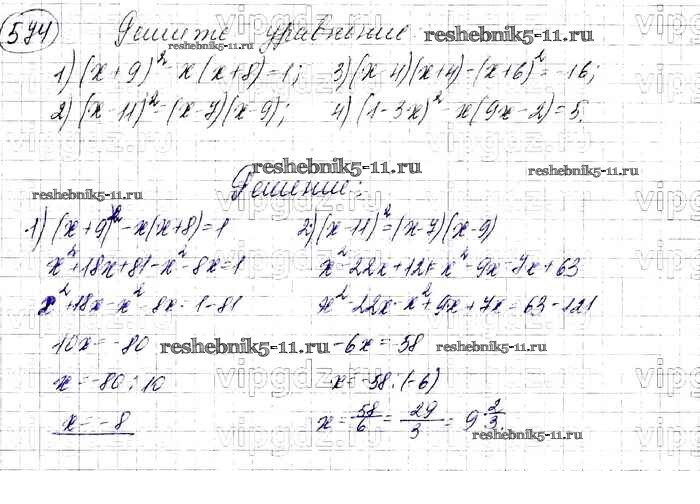 574 Решите уравнение reshebnik5-11.ru
reshebnik5-11.ru
1) (x+9)² - x(x+8)=1; 3) (x-4)(x+4)-(x+6)²=-16;
2) (x-11)²=(x-7)(x-9); 4) (1-3x)² - x(9x-2)=5.
reshebnik5-11.ru reshebnik5-11.ru
reshebnik5-11.ru Решение:
1) (x+9)² - x(x+8)=1 2) (x-11)²=(x-7)(x-9)
x²+18x+81-x²-8x=1 x²-22x+121=x²-9x-7x+63
x²+18x-x²-8x=1-81 x²-22x-x²+9x+7x=63-121
10x=-80 reshebnik5-11.ru -6x=-58 reshebnik5-11.ru
x=-80:10 x=-58:(-6)
x=-8 x=58/6=29/3=9 2/3.
reshebnik5-11.ru
vipgdz.ru